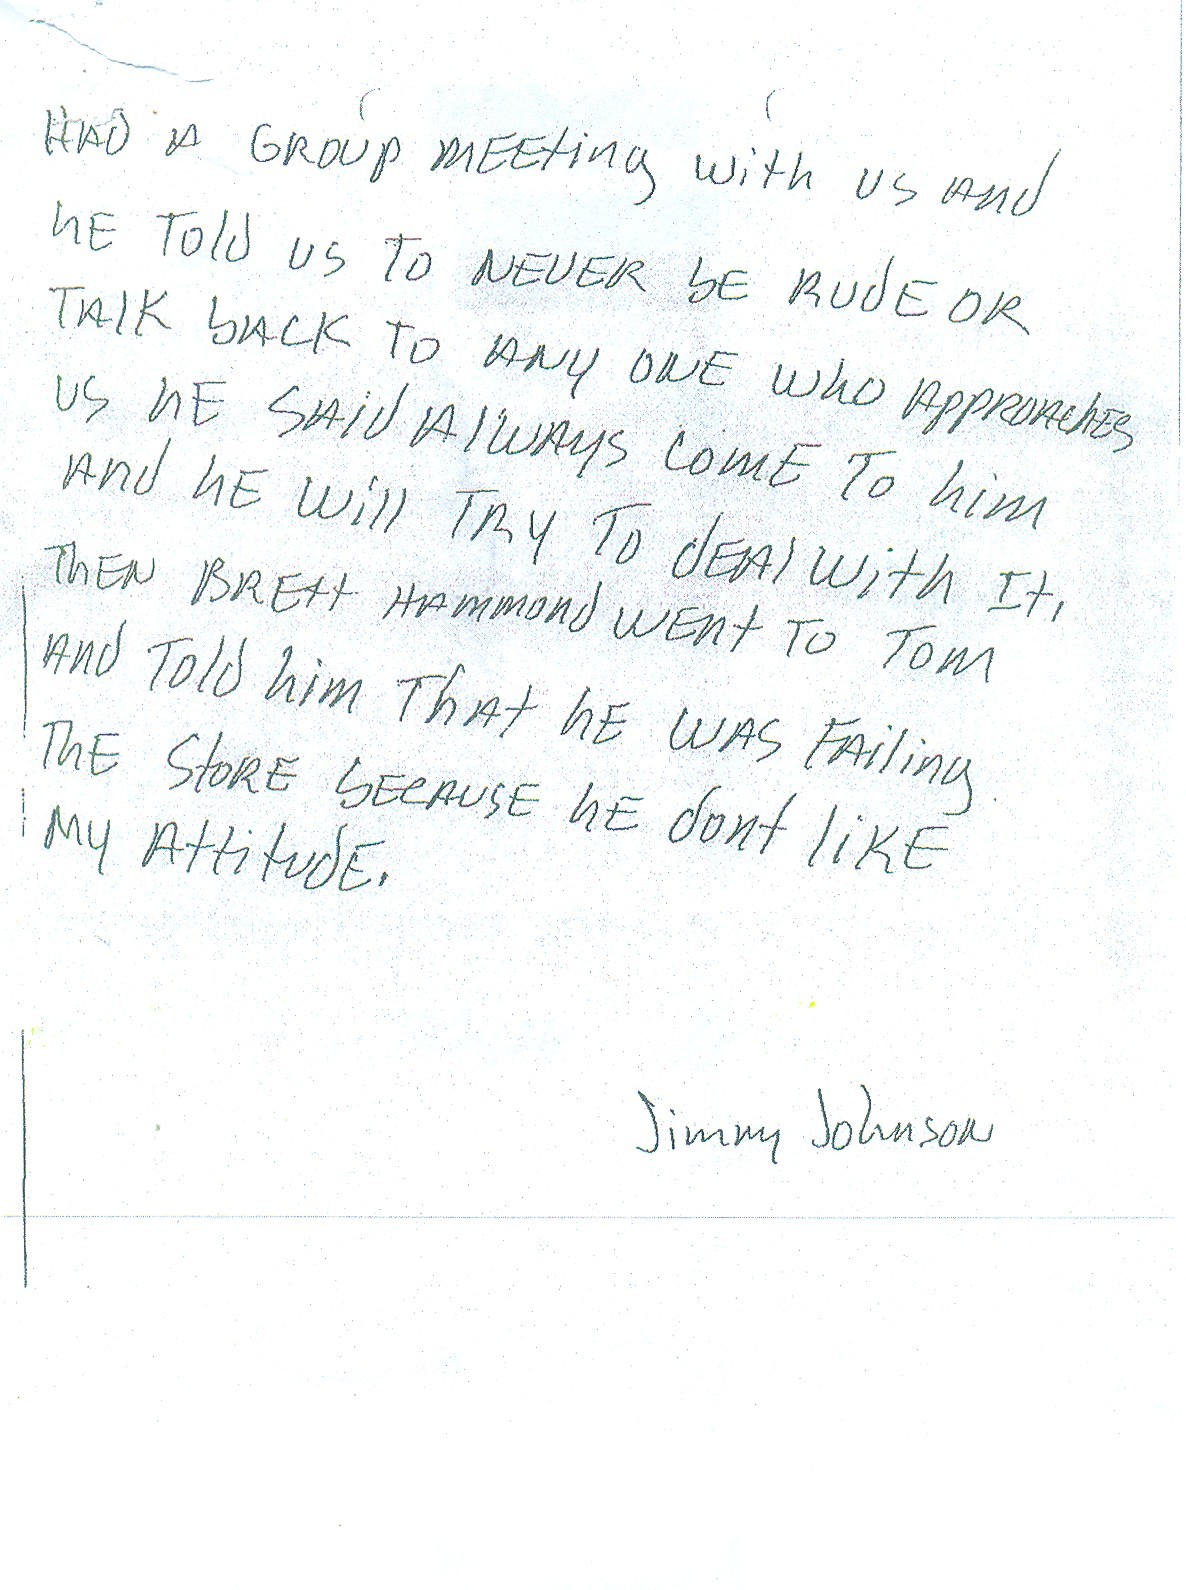 HAD A GROUP MEETING with US AND
hE TOld US TO NEVER bE RUdE OR
TAlK bACK TO ANY ONE Who APPROAChES
US hE SAid AlWAYS COME TO him
ANd hE Will TRY TO dEAl With It,
ThEN BREtt HAMMONd WENt TO TOM
ANd TOld him ThAt hE WAS FAiling
ThE StORE bECAUSE hE dont liKE
MY AttitudE.
Jimmy Johnson